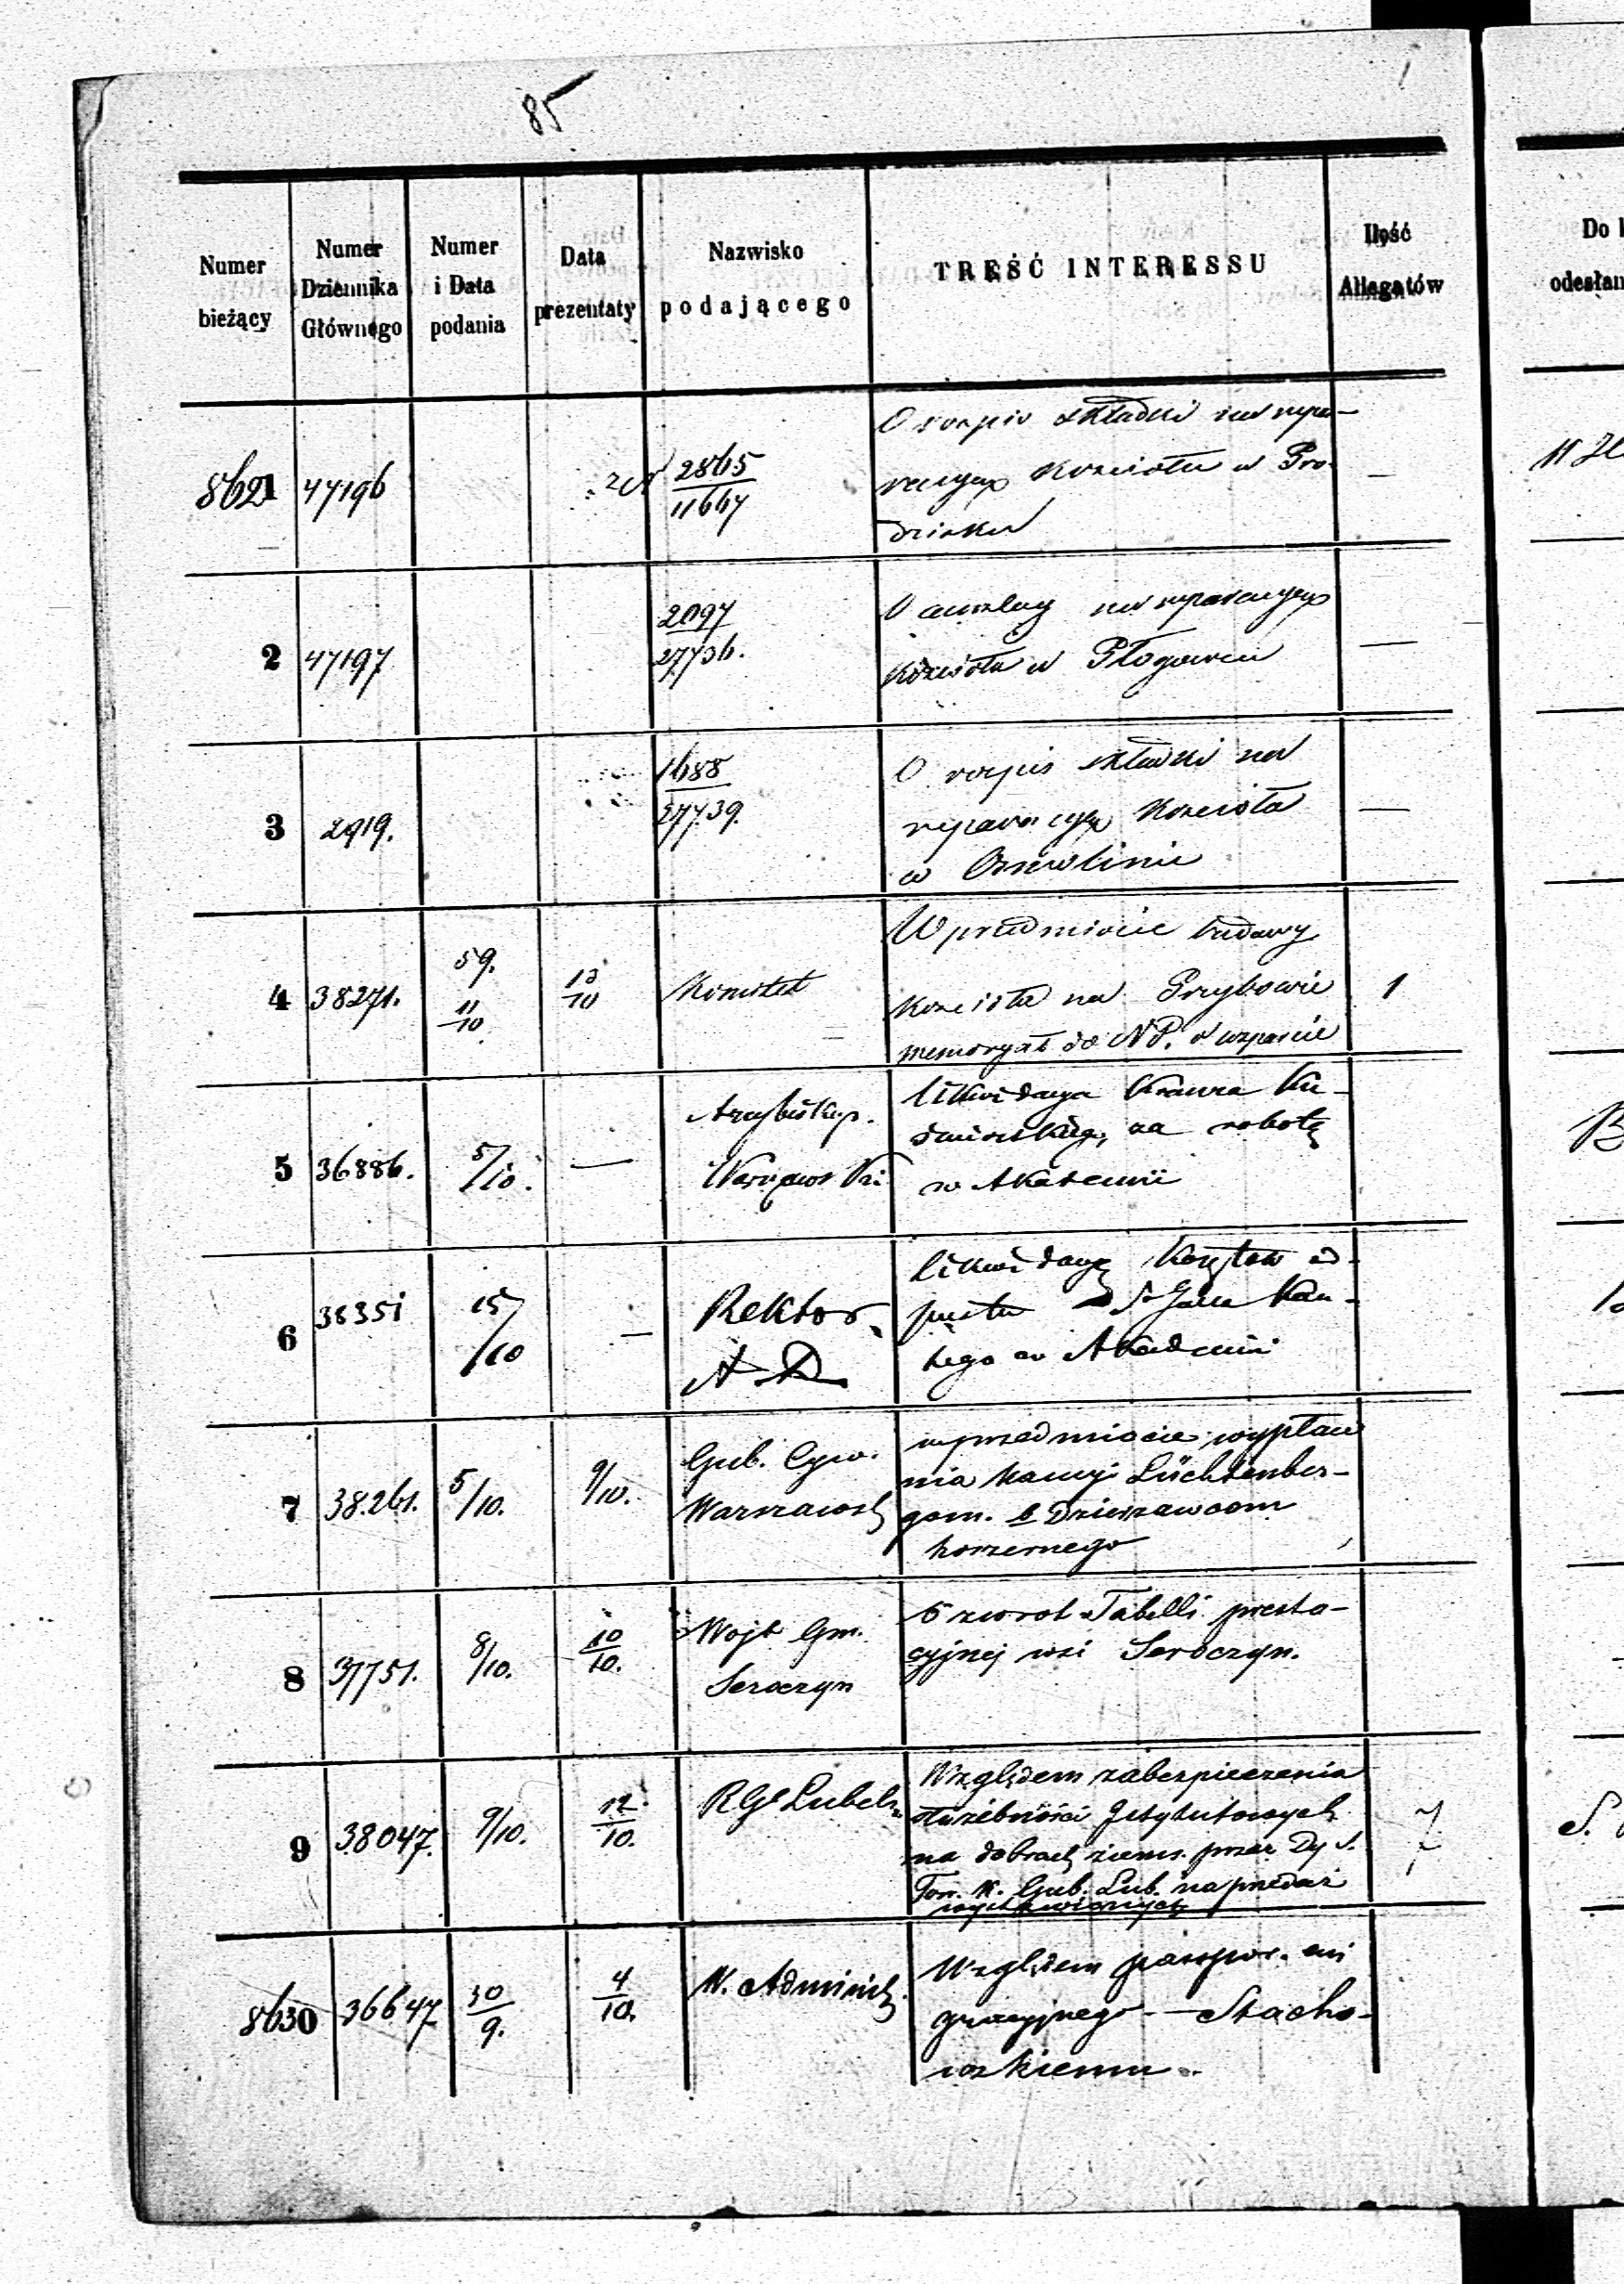 85
Numer bieżący
Numer Dziennika Głównego
Numer i Data podania
Data prezentaty
Nazwisko podającego
TREŚĆ INTERESSU
Ilość Allegatów
Do
odesłan
8621 47196 2865/11667 O rozpis składki na repa-
racyę Kościoła w Gro-
dzisku
—
2 47197 2097/27736. O na reparacyę
Kościoła w Głogowcu
—
3 2919. 1688/27739. O rozpis składki na
reparacyę Kościoła
w Osmolinie
—
4 38271. 59. 11/10 13/10 Komitet W przedmiocie budowy
Kościoła na Grzybowie
memoryał do NP. o wsparcie
1
5 36886. 5/10. — Arcybiskup.
Warszawski
Likwidacya
za robotę
w Akademii
6 38351 15/10 — Rektor
A. D.
Likwidacyę Kosztów od-
pustu Ś Jana Kan-
tego w Akademii
7 38.261. 5/10. 9/10. Gub. Cyw.
Warszawsk
w przedmiocie wypłace
nia kaucyi Lüchtenber-
gom. b Dzierzawcom
koszernego
8 37751. 8/10. 10/10. Wojt Gm.
Seroczyn
O zwrot Tabelli presta-
cyjnej wsi Seroczyn.
9 38047. 9/10. 12/10. RGł Lubels
Względem zabezpieczenia
służebności Istytutowych
na dobrach ziems. przez Dy S.
Tow. K. Gub. Lub. na przedaż
wystawionych
7
8630 36647 30/9. 4/10. W. Administ.
Względem paszpor. emi
gracyjnego — Stacho-
wskiemu.